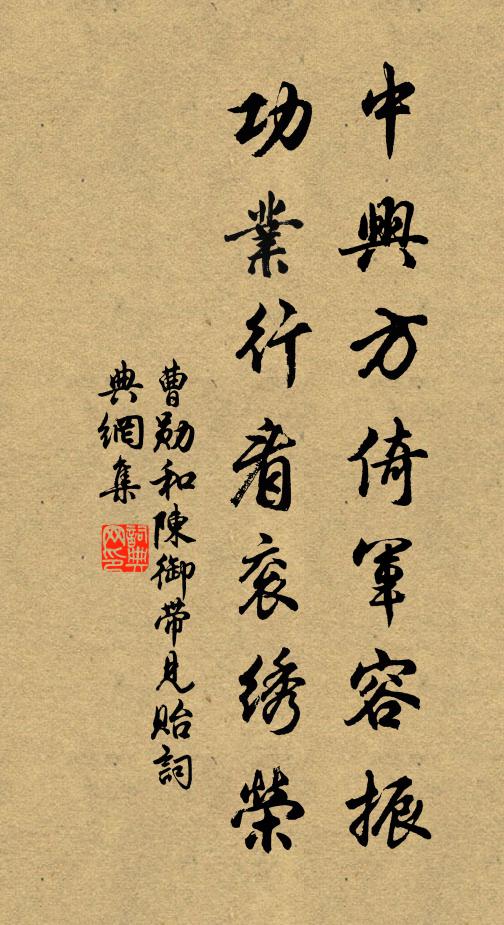 中興方倚軍容振
功業行看衮綉榮
曹勛和陳御帶見貽詞
典網集
詞典網印